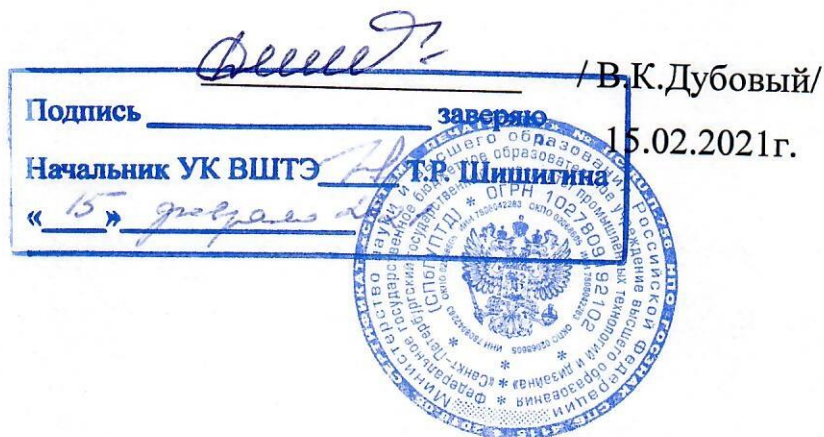 / В.К.Дубовый/
Подпись заверяю
15.02.2021г.
Начальник УК ВШТЭ Т.Р. Шишигина
« 15 » февраля
Министерство науки и высшего образования Российской Федерации
Федеральное государственное бюджетное образовательное учреждение высшего образования
«Санкт-Петербургский государственный университет промышленных технологий и дизайна»
(СПбГУПТД) * ОГРН 1027809192102